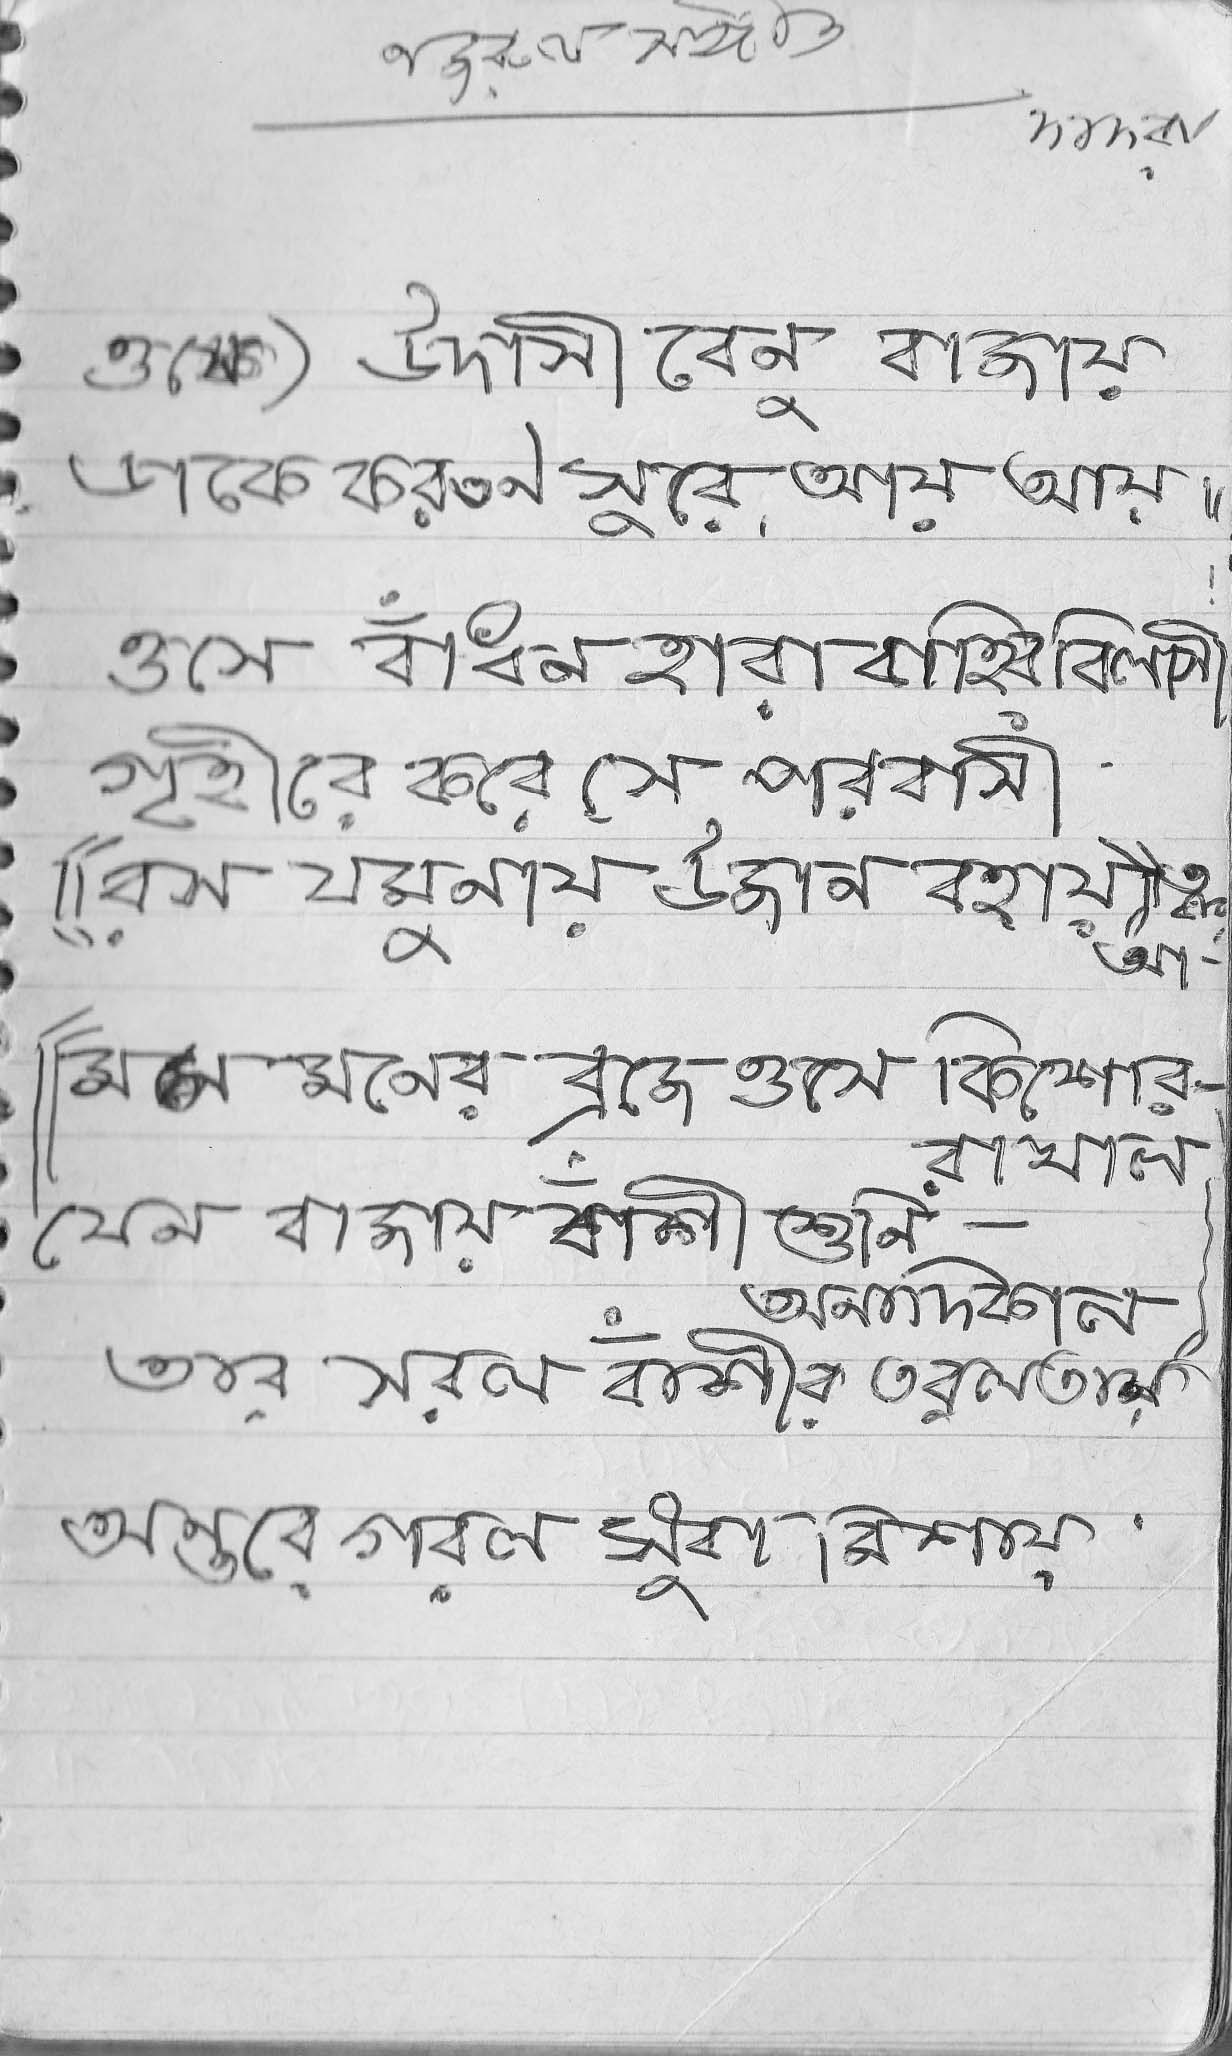 নজরুল সঙ্গীত
দাদরা
ওকে) উদাসী বেনু বাজায়
ডাকে করুণ সুরে, আয় আয় ॥
ওসে বাঁধন হারা বাহির বিলাসী
গৃহীরে করে সে পরবাসী
রস যমুনায় উজান বহায়
আ-
মম মনের ব্রজে ওসে কিশোর-
রাখাল
যেন বাজায় বাঁশী শুনি -
অনাদিকাল
তার সরল বাঁশীর তরলতায়
অন্তরে গরল সুধা মিশায়